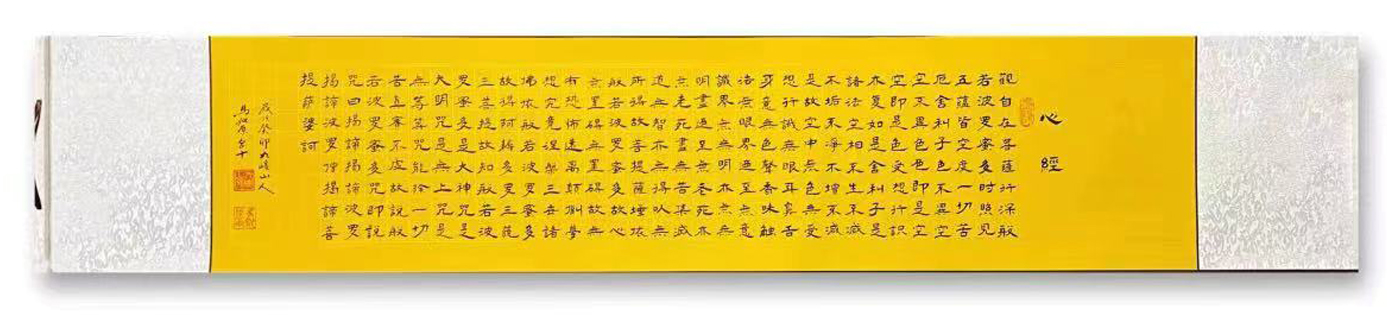 心經
觀自在菩薩行深般
若波罗蜜多時照見
五蘊皆空度一切苦
厄舍利子色不異空
空不異色色即是空
空即是色受想行識
亦復如是舍利子是
諸法空相不生不滅
不垢不淨不增不減
是故空中無色無受
想行識無眼耳鼻舌
身意無色聲香味觸
法無眼界乃至無意
識界無無明亦無無
明盡乃至無老死亦
無老死盡無苦集滅
道無智亦無得以無
所得故菩提薩埵依
般若波罗蜜多故心
無罣礙無罣礙故無
有恐怖遠離顛倒夢
想究竟涅槃三世諸
佛依般若波罗蜜多
故得阿耨多罗三藐
三菩提故知般若波
罗蜜多是大神咒是
大明咒是無上咒是
無等等咒能除一切
苦真實不虛故說般
若波罗蜜多咒即說
咒曰揭諦揭諦波罗
揭諦波罗僧揭諦菩
提薩婆訶
歲次癸卯山人